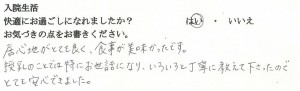 入院生活
快適にお過ごしになれましたか？ はい ・ いいえ
お気づきの点をお書きください。
居心地がとても良く、食事が美味かったです。
授乳のことでは特にお世話になり、いろいろと丁寧に教えて下さったので
とても安心できました。